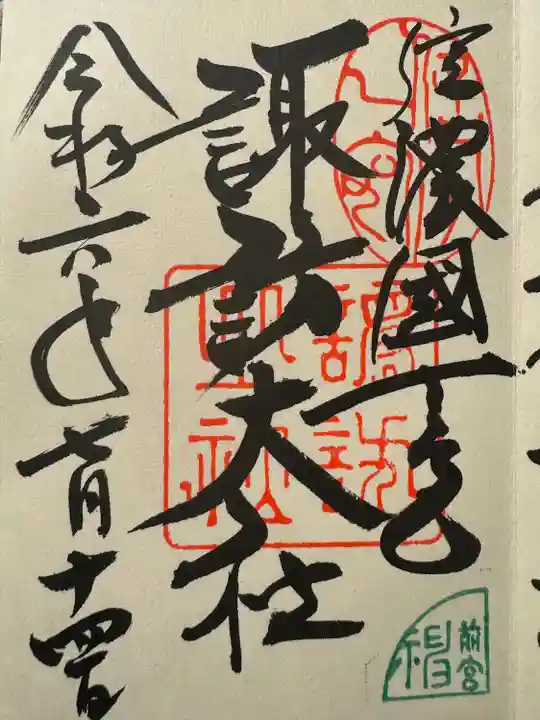 信濃國一之宮
諏訪大社
令和六年七月十四日
諏訪
神社
前宮